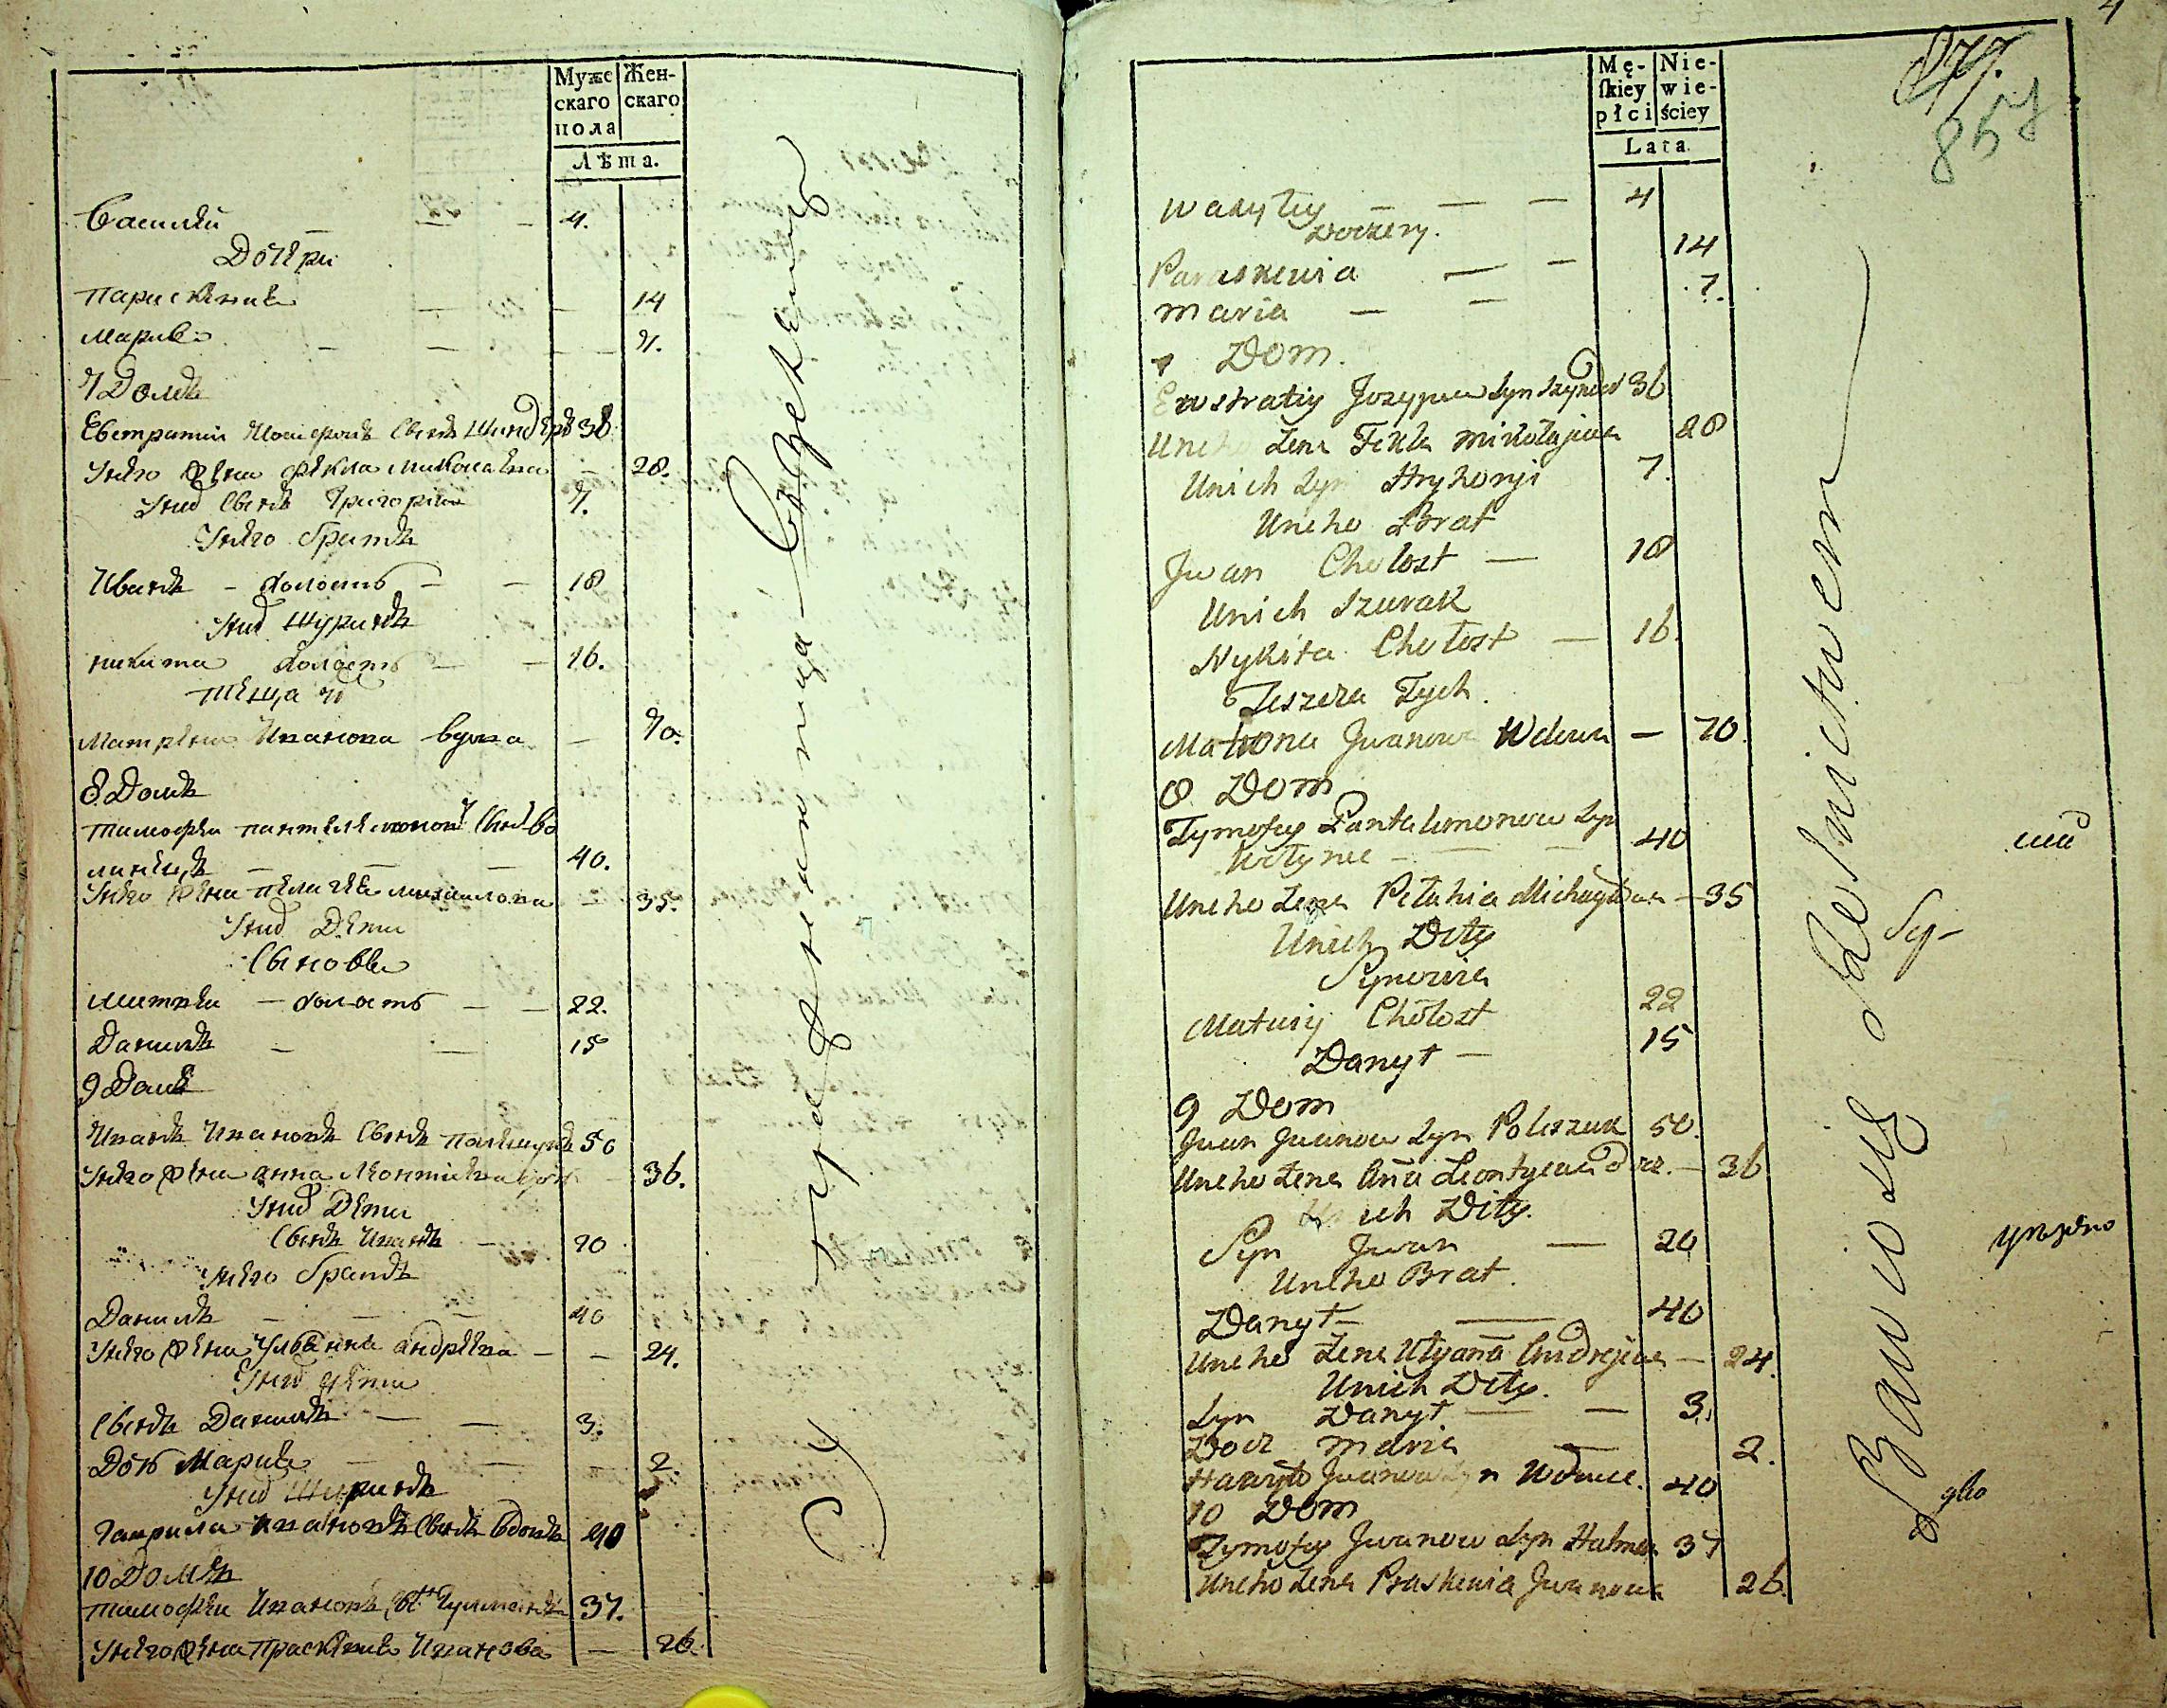 Муже Жен-
скаго скаго
пола
Лѣта.
Василей — — 4.
Дочери
Параскевия — — 14
Мария — — — 7.
7 Домъ
Евстратий Иосифовъ Сынъ Шиндеръ 36
Унего Жена Фекла Миколаева — 28.
Уних Сынъ Григорий 7.
Унего Братъ
Иванъ — Холостъ — — 18
Уних Шуринъ
Никита Холостъ — — 16.
Теща их
Матрена Иванова вдова — 70.
8 Домъ
Тимофей Пантелемонов Сынъ Во
линецъ — — — 40.
Унего Жена Пелагея Михаилова — 35.
Уних Дети
Сыновья
Митрей — Холостъ — — 22.
Данилъ — — 15
9 Домъ
Иванъ Ивановъ Сынъ Полещукъ 50
Унего Жена Анна Леонтиева — 36.
Уних Дети
Сынъ Иванъ — 20
Унего Братъ
Данилъ — — — 40
Унего Жена Ульянна Андреева — — 24.
Уних Дети
Сынъ Данилъ — — 3.
Дочь Мария — — — 2.
Уних Шуринъ
Гаврила Ивановъ Сынъ Вдовъ 40
10 Домъ
Тимофей Ивановъ Сн 37.
Унего Жена Прасковия Иванова — 26.
Mę- Nie-
ſkiey wie-
płci ściey
Lata
857
Wasyley — — — 4
Doczery.
Paraskewia — — 14
Maria — — 7.
7 Dom.
Ewstratiy Jozypow Syn Szynder 36
Uneho Żena Fekla Mikołajewa 28
Unich Syn Hryhoryi 7.
Uneho Brat
Jwan Chołost — 18
Unich Szurak
Nykita Chołost — 16.
Teszcza Tych.
Matrona Jwanowa Wdowa — 70.
8 Dom
Tymofey Pantalimonow Syn
Wołynec — — — 40
Uneho Żena Pełahia Michayłowa — 35
Unich Dity
Synowia
Matwiy Chołost 22
Danył — 15
9 Dom
Jwan Jwanow Syn Poleszuk 50.
Uneho Żena Anna Leontyewa — 36
Unich Dity.
Syn Jwan — 20
Uneho Brat.
Danył — — 40
Uneho Żena Ulyana Andrejewa — 24.
Unich Dity.
Syn Danył — — 3.
Docz Maria — 2.
Hawryło Jwanow Syn Wdowec. 40
10 Dom
Tymofey Jwanow Syn 37
Uneho Żena Praskewia Jwanowa 26.